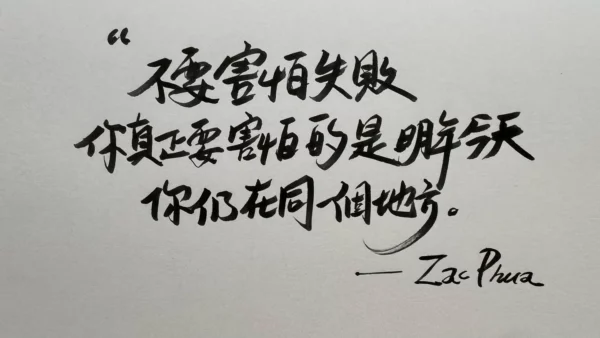 “不要害怕失敗
你真正要害怕的是明年今天
你仍在同一個地方。
— Zac Phua